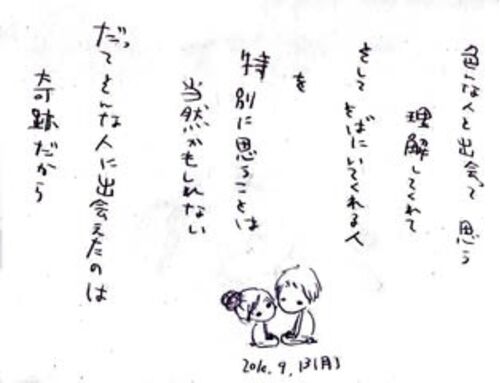 色んな人と出会って 思う
理解してくれて
そして そばにいてくれる人
を
特別に思うことは
当然かもしれない
だってそんな人に出会えたのは
奇跡だから
2010.9.13(月)